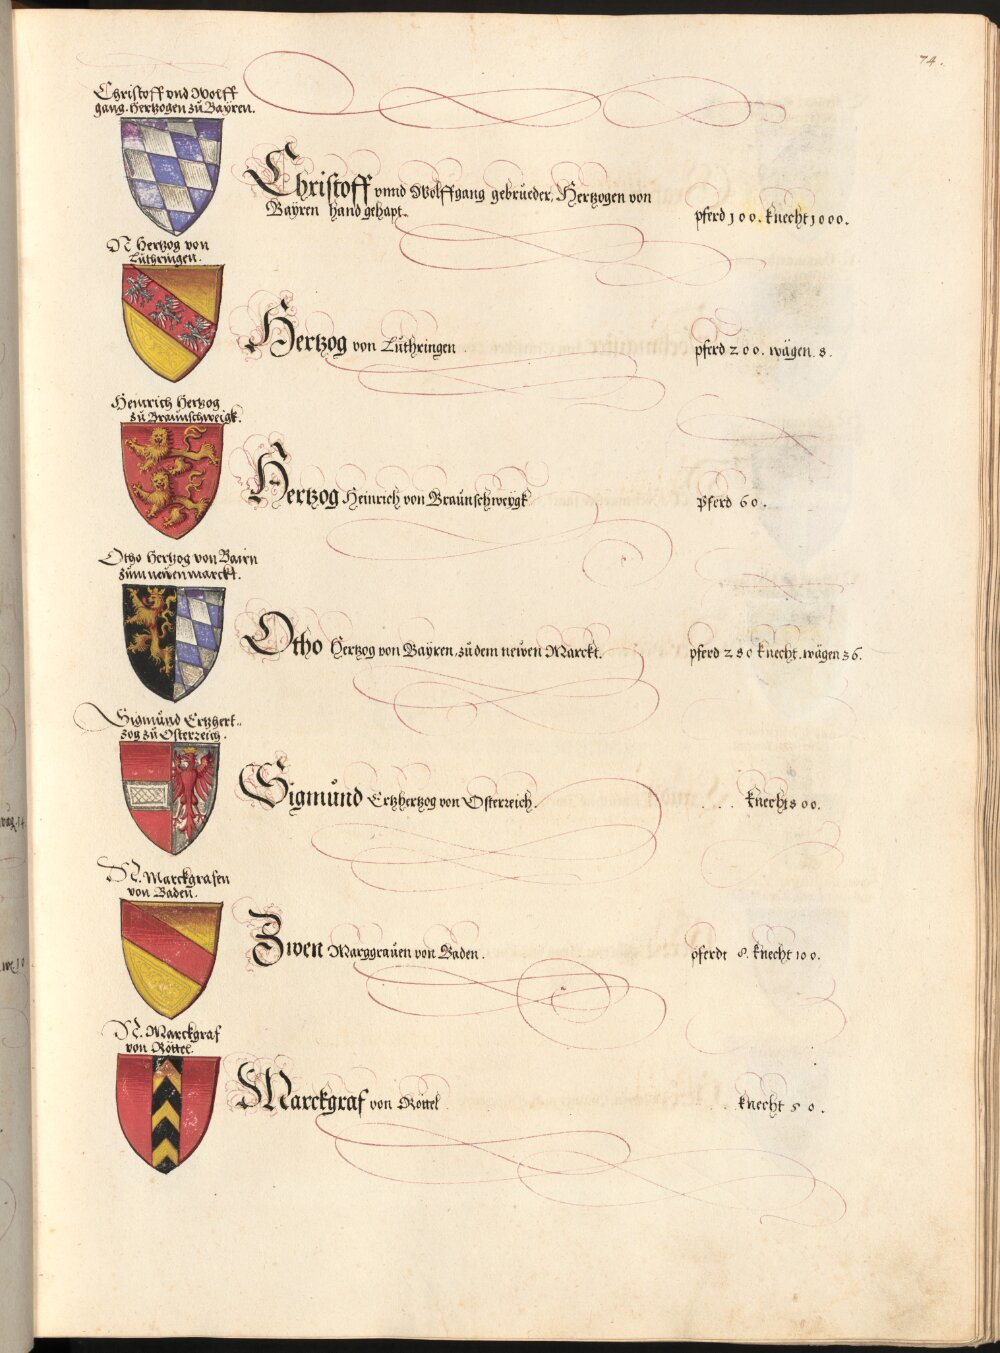 74.
Christoff vnd Wolff
gang. Hertzogen zů Baÿren.
Christoff vnnd Wolffgang gebrůeder, Hertzogen von
Baÿren hand gehapt.
pferd 100. knecht 1000.
N Hertzog von
Luthringen.
Hertzog von Luthringen
pferd 200. wägen. 8.
Heinrich Hertzog
zů Braunschweigk.
Hertzog Heinrich von Braunschweÿgk
Pferd 60.
Otho Hertzog von Bairn
zum neüenmarckt.
Otho Hertzog von Baÿren, zů dem neüen Marckt.
pferd 280 knecht. wägen 36.
Sigmůnd Ertzhert..
zog zů Osterreich.
Sigmůnd Ertzhertzog von Osterreich.
knecht 800.
N. Marckgrafen
von Baden.
Zwen Marggrauen von Baden.
pferdt 8. knecht 100.
N. Marckgraf
von Röttel.
Marckgraf von Röttel
knecht 50.